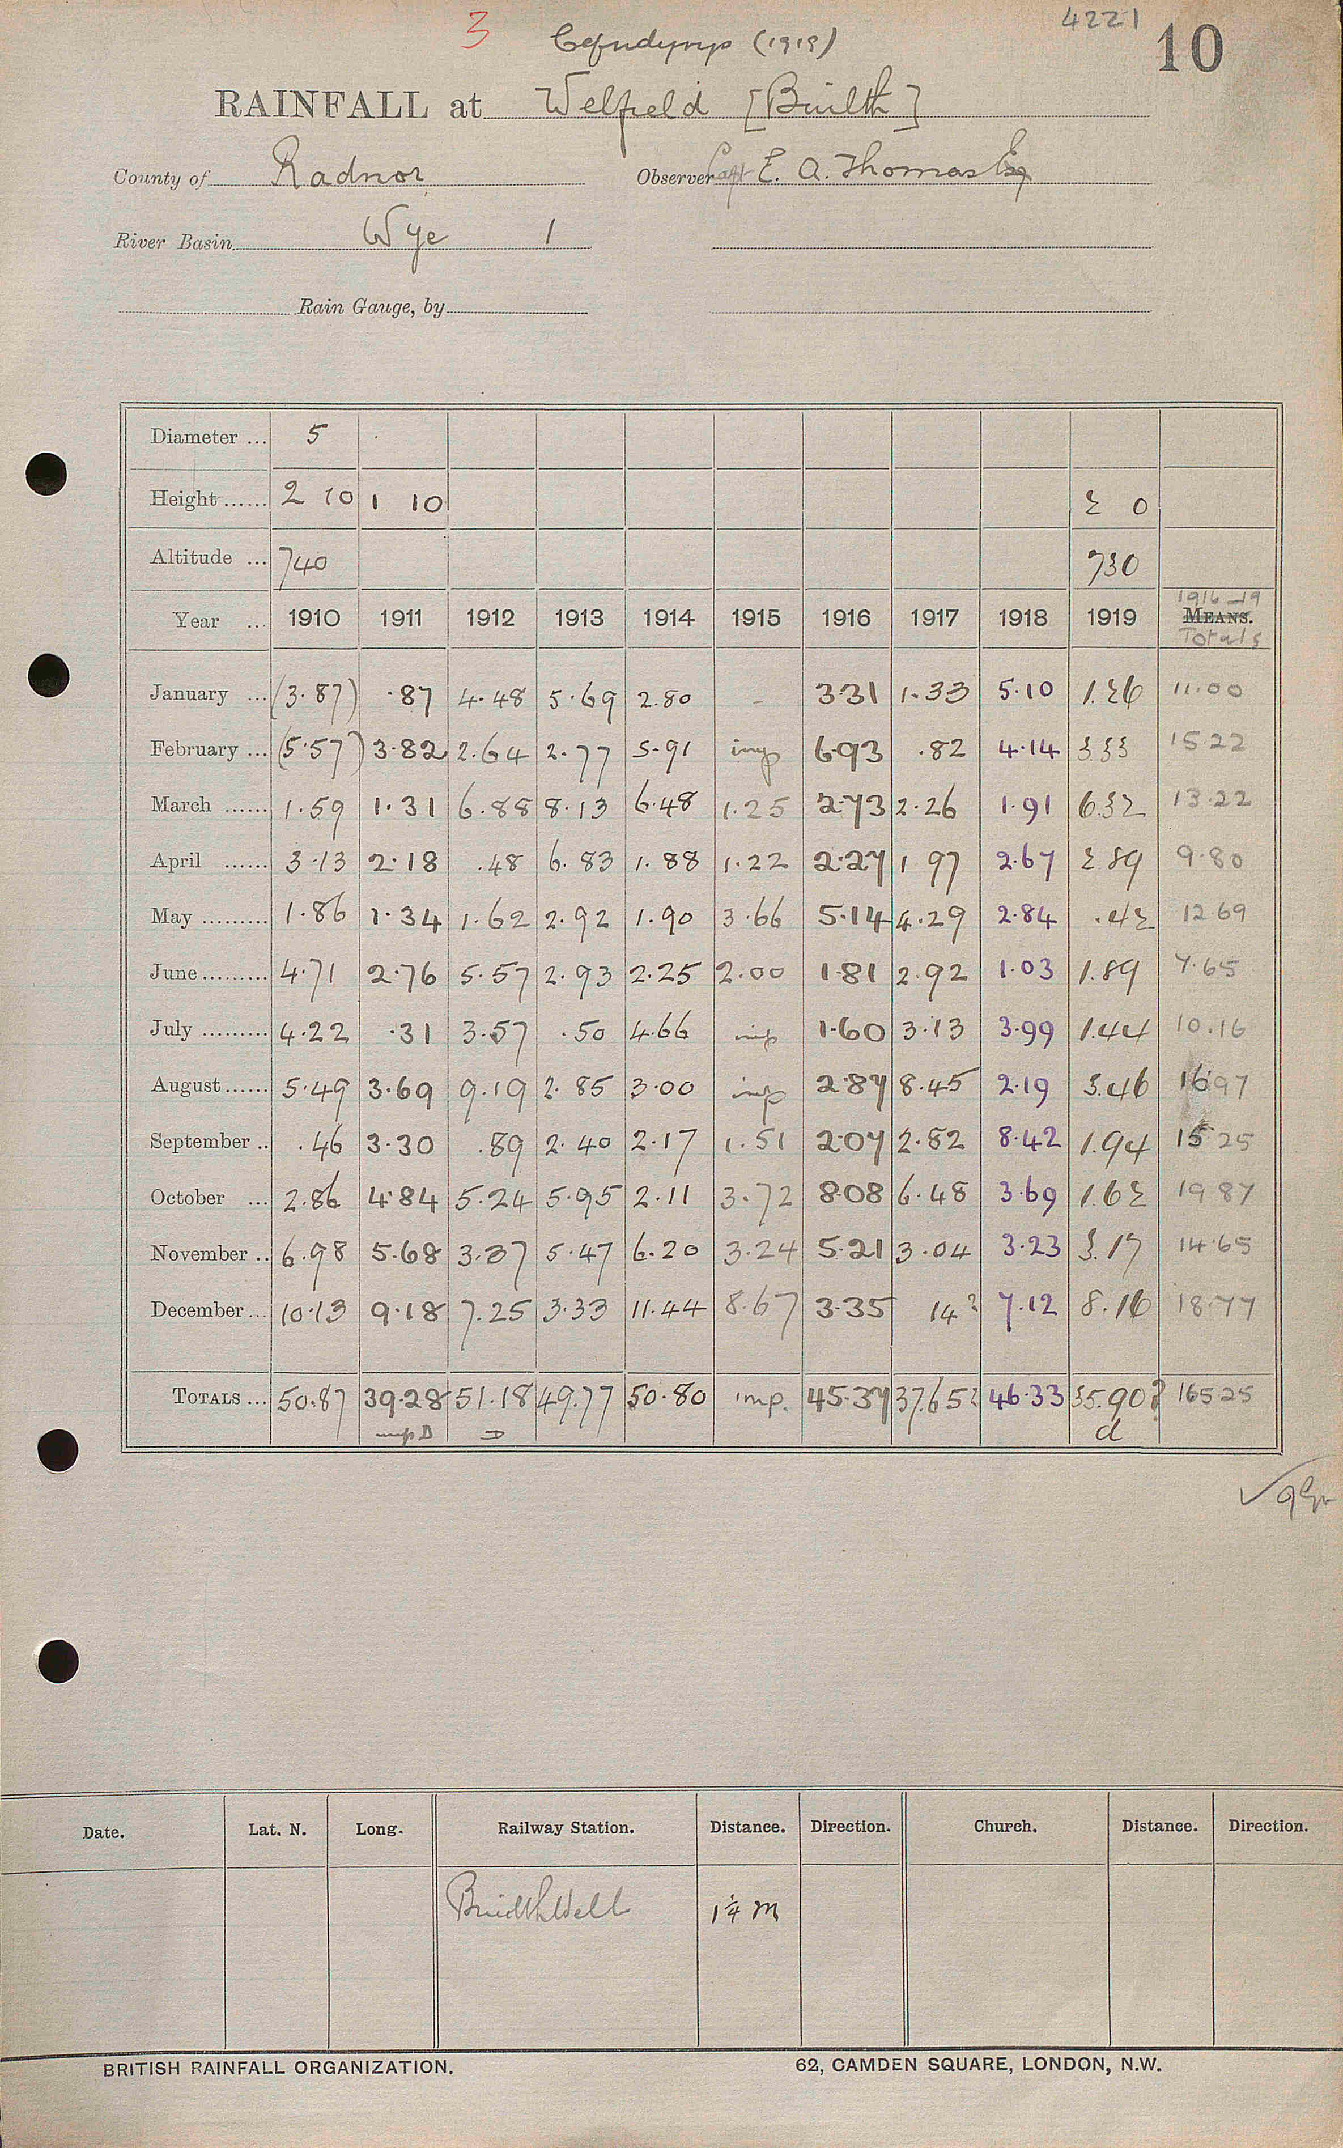 3 Cefndyrys (1919) 4221 10
RAINFALL at Welfield [Builth]
County of Radnor Observer Capt E. A. Thomas Esq
River Basin Wye 1
Rain Gauge, by
Diameter ... 5
Height ...... 2 10 1 10 2 0
Altitude ... 740 730
1916-19
Year ... 1910 1911 1912 1913 1914 1915 1916 1917 1918 1919 MEANS.
Totals
January ... (3.87) .87 4.48 5.69 2.80 - 3.31 1.33 5.10 1.26 11.00
February ... (5.57) 3.82 2.64 2.77 5.91 imp 6.93 .82 4.14 3.33 15.22
March ...... 1.59 1.31 6.88 8.13 6.48 1.25 2.73 2.26 1.91 6.32 13.22
April ...... 3.13 2.18 .48 6.83 1.88 1.22 2.27 1.97 2.67 2.89 9.80
May ......... 1.86 1.34 1.62 2.92 1.90 3.66 5.14 4.29 2.84 .42 12.69
June ......... 4.71 2.76 5.57 2.93 2.25 2.00 1.81 2.92 1.03 1.89 7.65
July ......... 4.22 .31 3.57 .50 4.66 imp 1.60 3.13 3.99 1.44 10.16
August ...... 5.49 3.69 9.19 2.85 3.00 imp 2.87 8.45 2.19 3.46 16.97
September .. .46 3.30 .89 2.40 2.17 1.51 2.07 2.82 8.42 1.94 15.25
October ... 2.86 4.84 5.24 5.95 2.11 3.72 8.08 6.48 3.69 1.62 19.87
November .. 6.98 5.68 3.37 5.47 6.20 3.24 5.21 3.04 3.23 3.17 14.65
December ... 10.13 9.18 7.25 3.33 11.44 8.67 3.35 14? 7.12 8.16 18.77
TOTALS ... 50.87 39.28 51.18 49.77 50.80 imp. 45.37 37.65? 46.33 35.90? 165.25
imp D D d
Date. Lat. N. Long. Railway Station. Distance. Direction. Church. Distance. Direction.
Builth Wells 1¼ m
BRITISH RAINFALL ORGANIZATION. 62, CAMDEN SQUARE, LONDON, N.W.